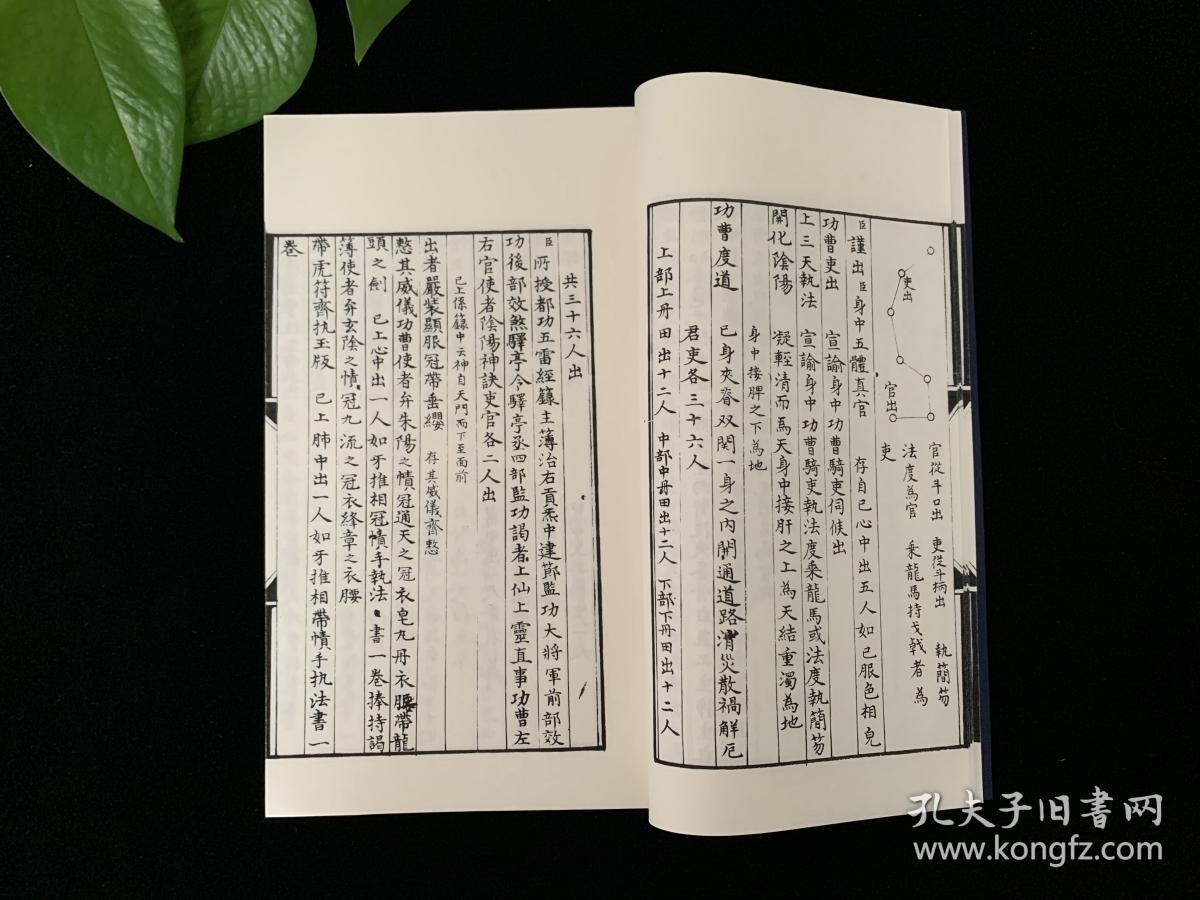 吏出
官出
官從斗口出 吏從斗柄出 執簡笏
法度為官 乘龍馬持戈戟者為
吏
臣謹出臣身中五體真官 存自己心中出五人如己服色相皃
功曹吏出 宣諭身中功曹騎吏伺候出
上三天執法 宣諭身中功曹騎吏執法度乘龍馬或法度執簡笏
開化陰陽 凝輕清而為天身中接肝之上為天結重濁為地
身中接脾之下為地
功曹度道 已身夾脊双関一身之內開通道路消災散禍解厄
君吏各三十六人
上部上丹田出十二人 中部中丹田出十二人 下部下丹田出十二人
共三十六人出
臣所授都功五雷經籙主簿治右貢炁中建節監功大將軍前部效
功後部效煞驛亭令驛亭丞四部監功謁者上仙上靈直事功曹左
右官使者陰陽神訣吏官各二人出
已上係籙中云神自天門而下至面前
出者嚴裝顯服冠帶垂纓 存其威儀齊整
整其威儀功曹使者弁朱陽之幘冠通天之冠衣皂九丹衣腰帶龍
頭之劍 已上心中出一人如牙推相冠幘手執法書一卷捧持謁
簿使者弁玄陰之幘冠九流之冠衣絳章之衣腰
帶虎符齊执玉版 已上肺中出一人如牙推相帶幘手执法書一
卷
孔夫子旧書网
www.kongfz.com